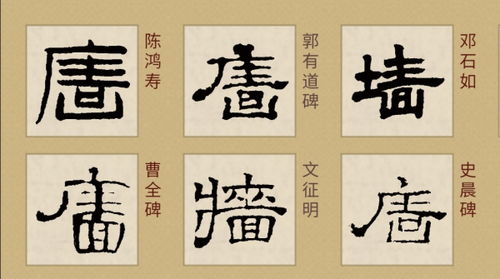 陈鸿寿
郭有道碑
墙
邓石如
曹全碑
牆
文征明
史晨碑